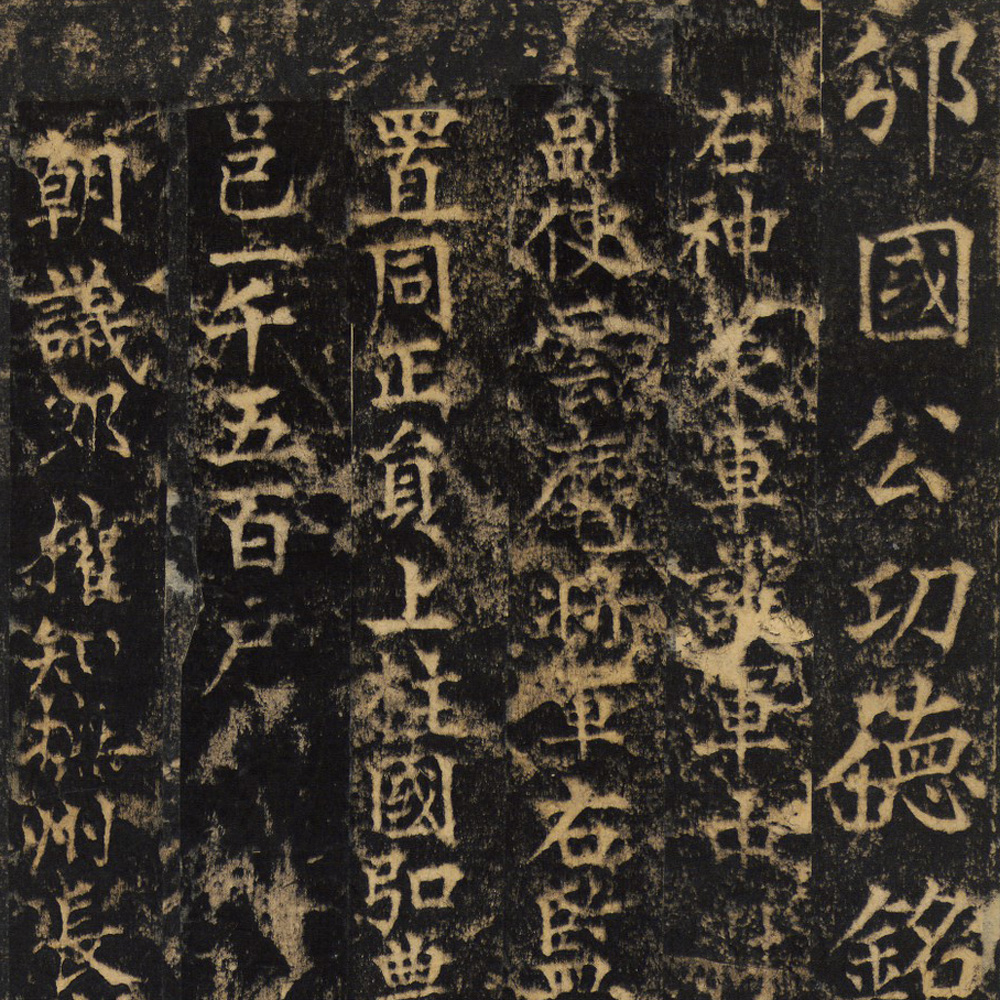 邠國公功德銘
右神策軍護軍中
副使雲麾將軍右監
置同正員上柱國弘農
邑一千五百户
朝議郎權知州張